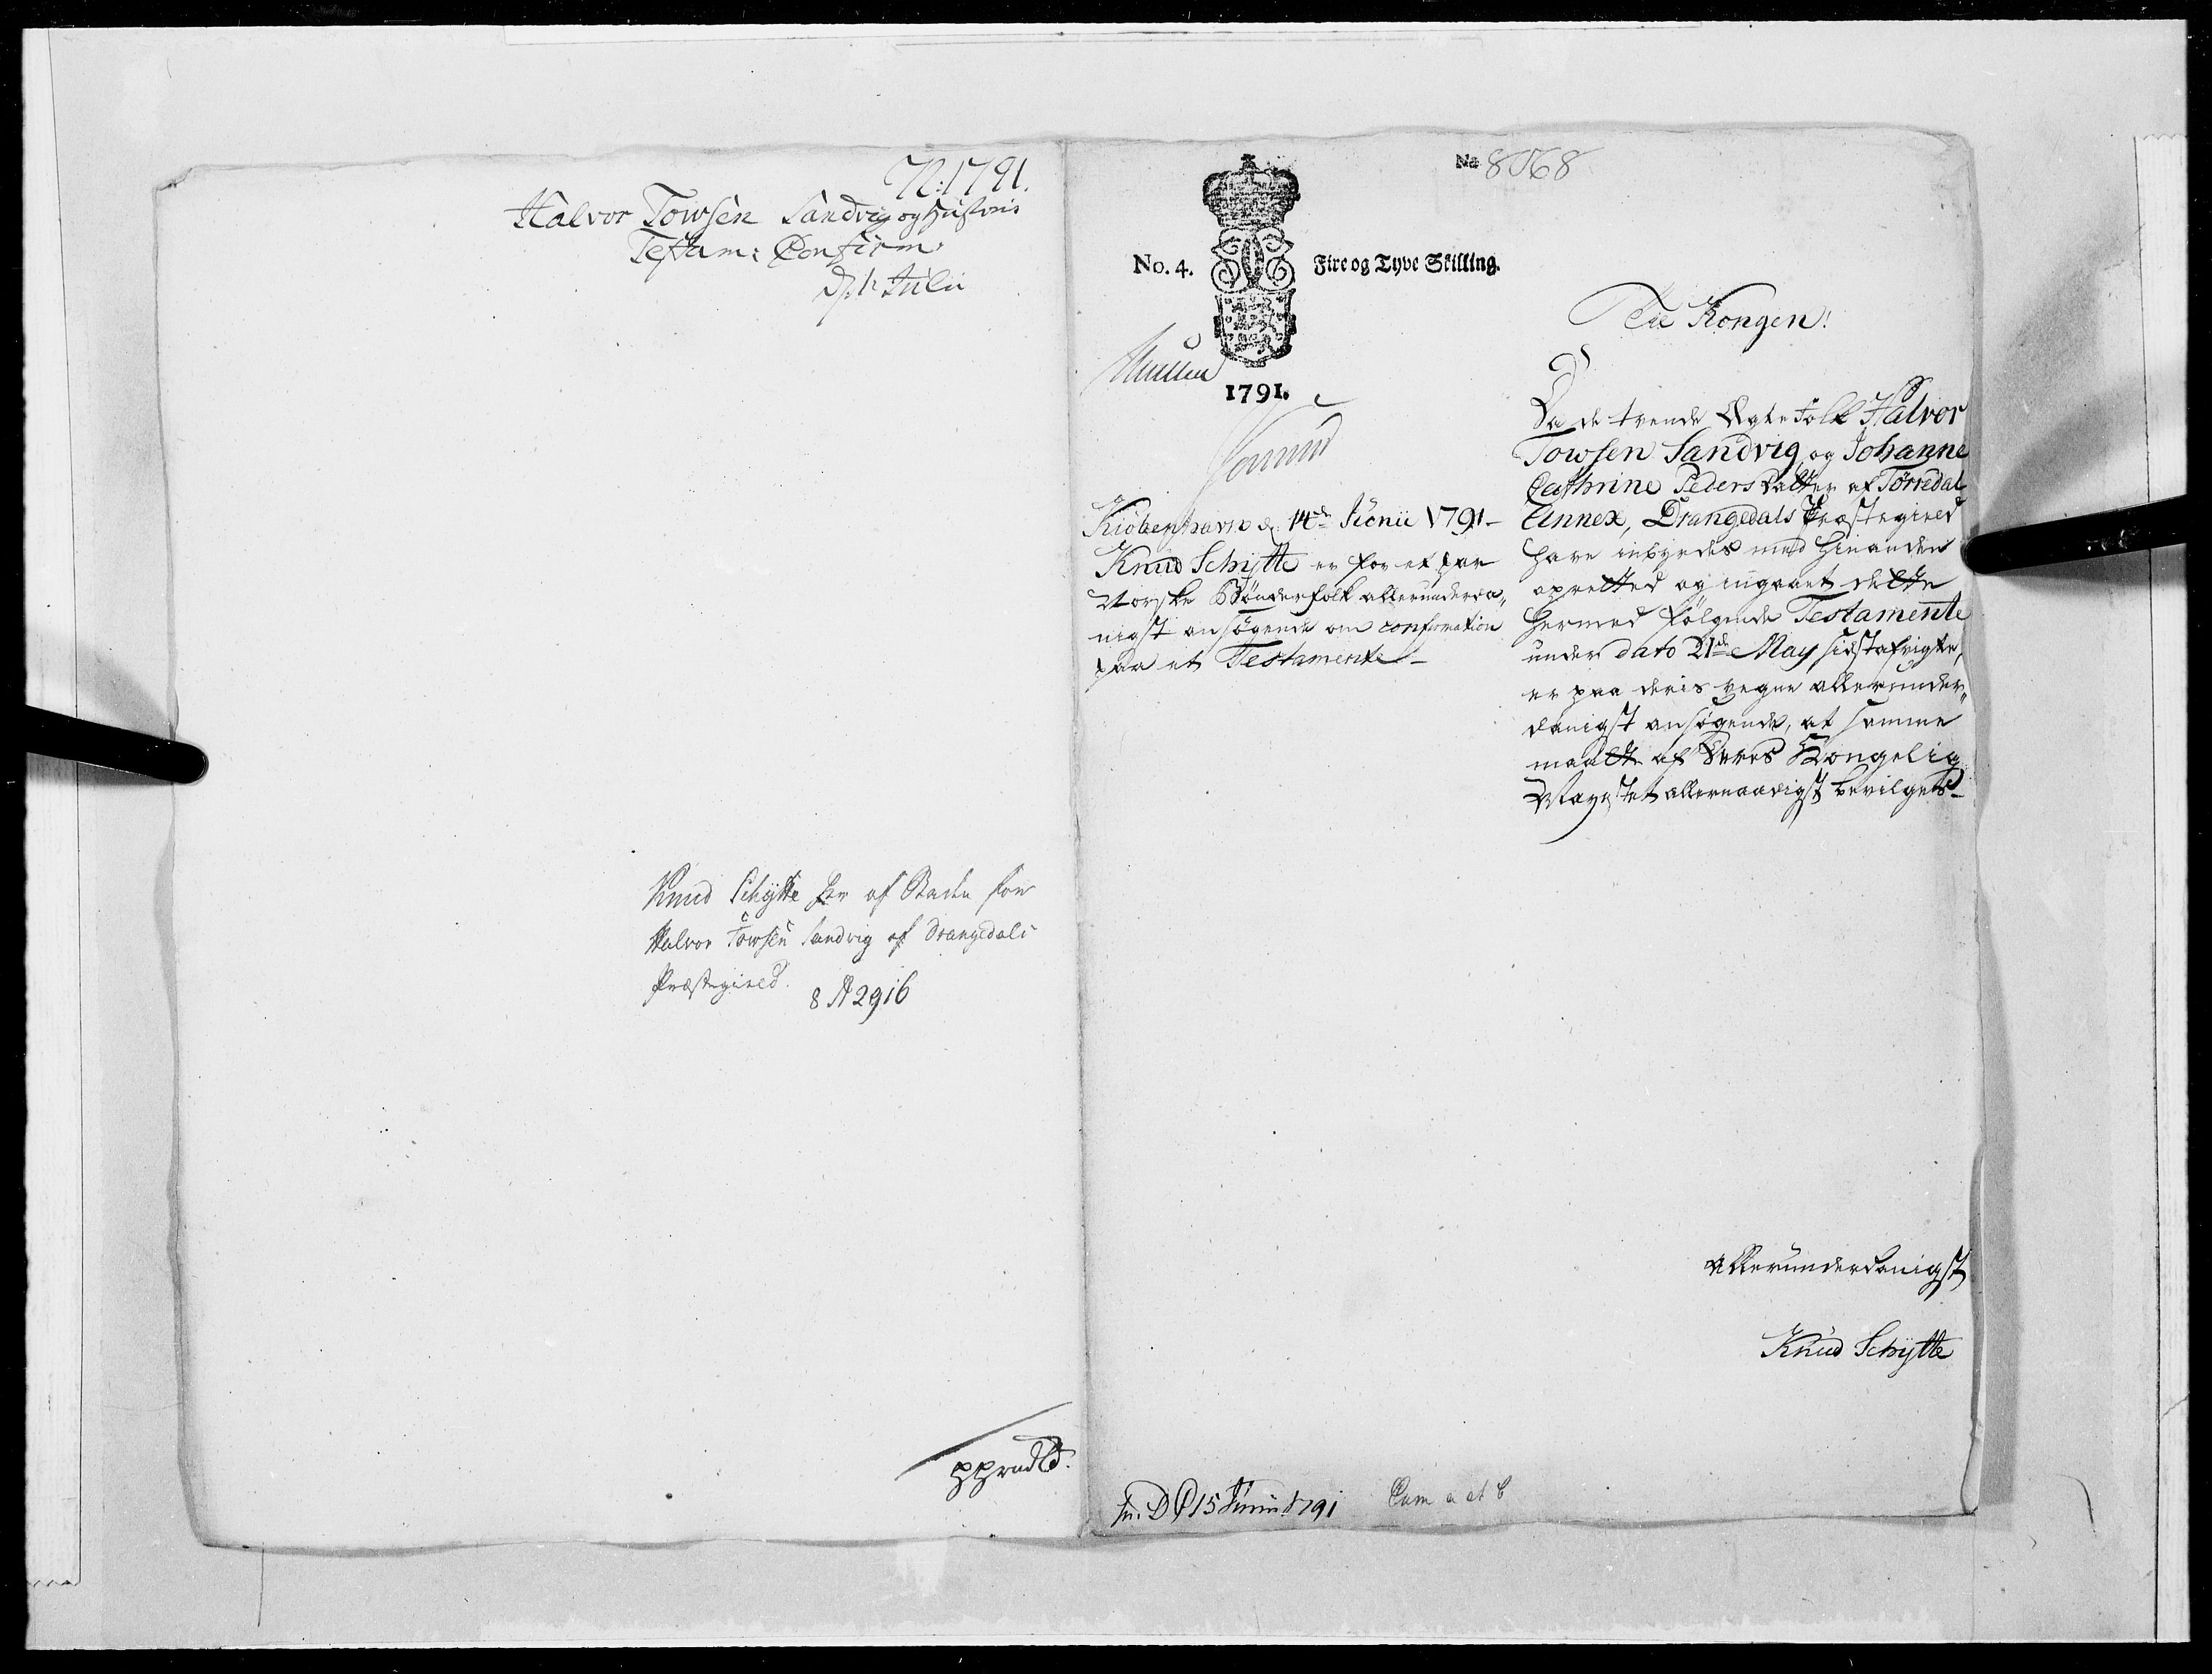 N: 1791.
Halvor Towsen Sandvig og Hustrues
Testam: Confirm:
D. 1 Julii
Knud Schytte Ser af Raden for
Halvor Towsen Sandvig af Drangedals
Præstegield.
8 A 2916
No 8568
No. 4.
Fire og Tyve Skilling.
1791.
Kiøbenhavn d. 14de Junii 1791 –
Knud Schytte er for et par
Norske Bønderfolk allerunderda„
nigst ansøgende om confirmation
paa et Testamente –
Til Kongen!
Da de tvende Ægtefolk Halvor
Towsen Sandvig og Johanne
Cathrine Pedersdatter af Tørredal
Annex, Drangedals Præstegield
have inbyrdes med hinanden
oprettet og ingaaet dette
hermed følgende Testamente
under dato 21de May sidstafvigte,
er paa deris vegne allerunder„
danigst ansøgende, at samme
maatte af Deres Kongelig
Mayestet allernaadigst bevilges –
Allerunderdanigst
Knud Schytte
In. D C 15 Junii 1791
Cum a et b